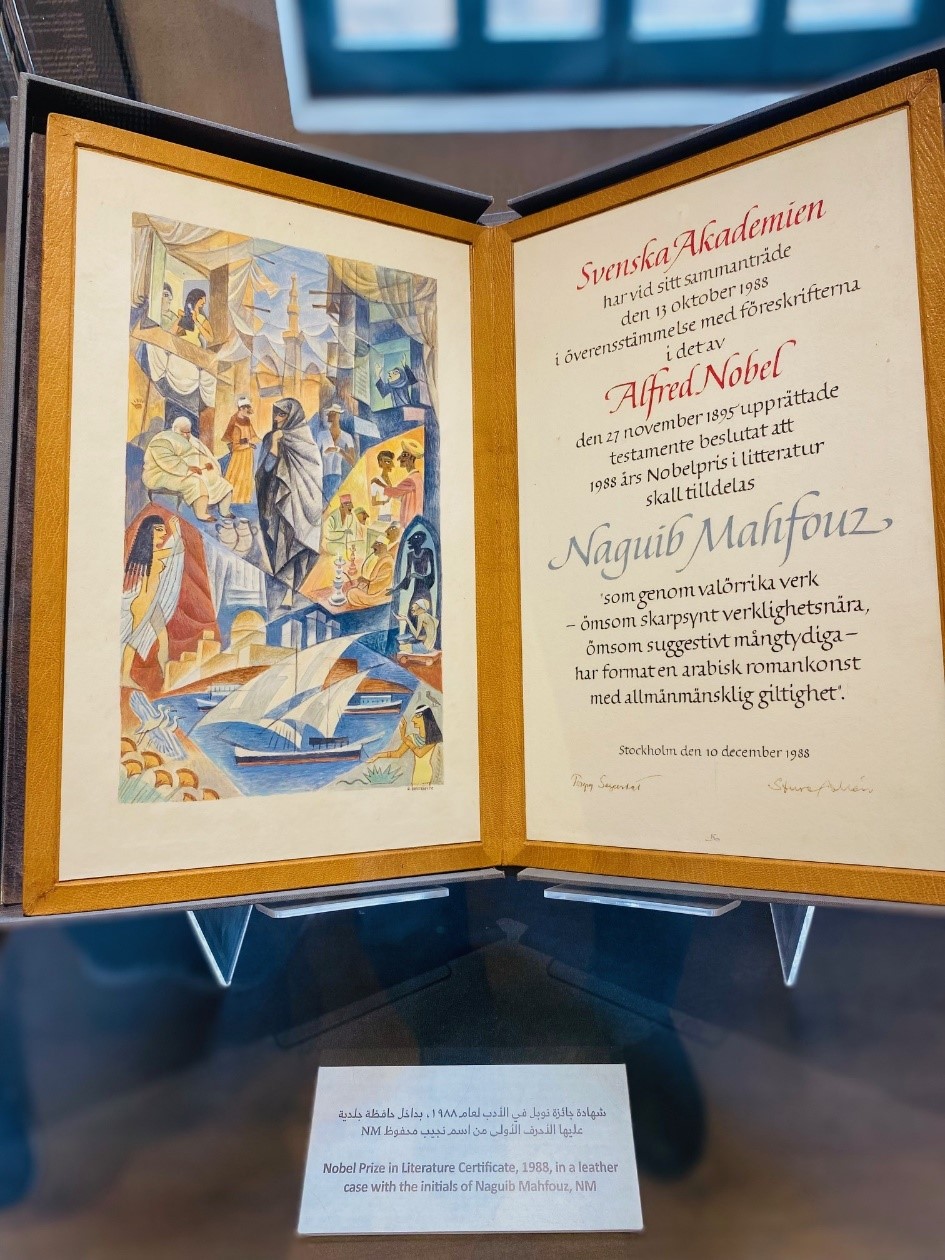 Svenska Akademien
har vid sitt sammanträde
den 13 oktober 1988
i överensstämmelse med föreskrifterna
i det av
Alfred Nobel
den 27 november 1895 upprättade
testamente beslutat att
1988 års Nobelpris i litteratur
skall tilldelas
Naguib Mahfouz
"som genom valörrika verk
– ömsom skarpsynt verklighetsnära,
ömsom suggestivt mångtydiga –
har format en arabisk romankonst
med allmänmänsklig giltighet".
Stockholm den 10 december 1988
شهادة جائزة نوبل في الأدب لعام ١٩٨٨، بداخل حافظة جلدية
عليها الأحرف الأولى من اسم نجيب محفوظ NM
Nobel Prize in Literature Certificate, 1988, in a leather
case with the initials of Naguib Mahfouz, NM